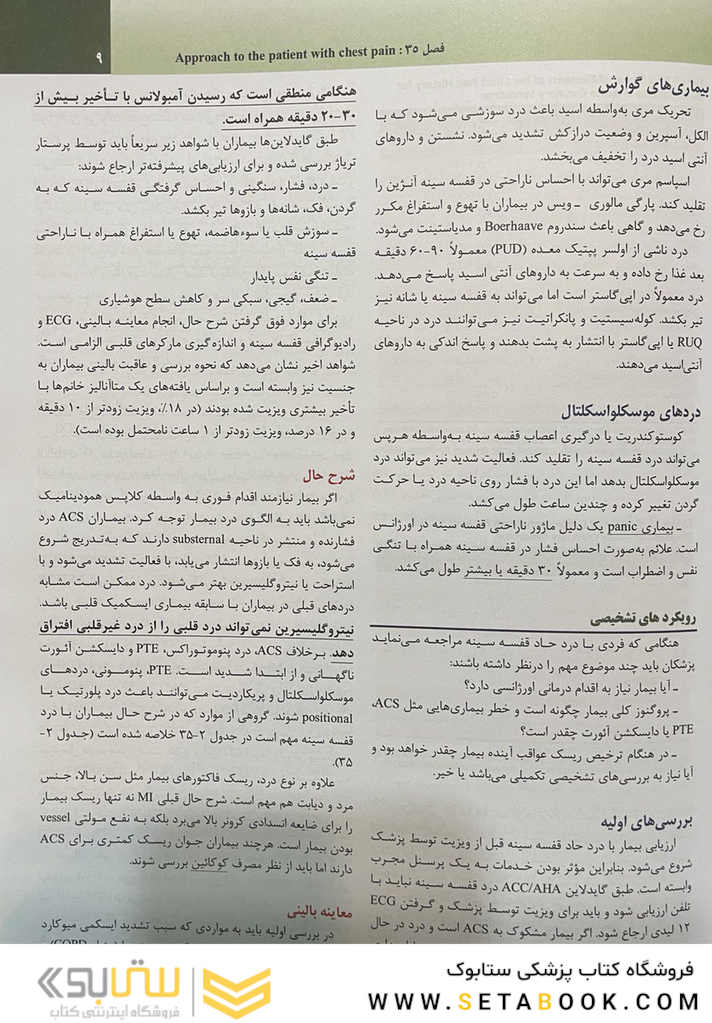 فصل ۳۵ : Approach to the patient with chest pain
۹
بیماری‌های گوارش
تحریک مری به‌واسطه اسید باعث درد سوزشی می‌شود که با
الکل، آسپرین و وضعیت درازکش تشدید می‌شود. نشستن و داروهای
آنتی اسید درد را تخفیف می‌بخشد.
اسپاسم مری می‌تواند با احساس ناراحتی در قفسه سینه آنژین را
تقلید کند. پارگی مالوری ـ ویس در بیماران با تهوع و استفراغ مکرر
رخ می‌دهد و گاهی باعث سندروم Boerhaave و مدیاستینت می‌شود.
درد ناشی از اولسر پپتیک معده (PUD) معمولاً ۹۰-۶۰ دقیقه
بعد غذا رخ داده و به سرعت به داروهای آنتی اسید پاسخ می‌دهد.
درد معمولاً در اپی‌گاستر است اما می‌تواند به قفسه سینه یا شانه نیز
تیر بکشد. کوله‌سیستیت و پانکراتیت نیز می‌توانند درد در ناحیه
RUQ یا اپی‌گاستر با انتشار به پشت بدهند و پاسخ اندکی به داروهای
آنتی‌اسید می‌دهند.
دردهای موسکلواسکلتال
کوستوکندریت یا درگیری اعصاب قفسه سینه به‌واسطه هرپس
می‌تواند درد قفسه سینه را تقلید کند. فعالیت شدید نیز می‌تواند درد
موسکلواسکلتال بدهد اما این درد با فشار روی ناحیه درد یا حرکت
گردن تغییر کرده و چندین ساعت طول می‌کشد.
ـ بیماری panic یک دلیل ماژور ناراحتی قفسه سینه در اورژانس
است. علائم به‌صورت احساس فشار در قفسه سینه همراه با تنگی
نفس و اضطراب است و معمولاً ۳۰ دقیقه یا بیشتر طول می‌کشد.
رویکرد های تشخیصی
هنگامی که فردی با درد حاد قفسه سینه مراجعه می‌نماید
پزشکان باید چند موضوع مهم را درنظر داشته باشند:
ـ آیا بیمار نیاز به اقدام درمانی اورژانسی دارد؟
ـ پروگنوز کلی بیمار چگونه است و خطر بیماری‌هایی مثل ACS،
PTE یا دایسکشن آئورت چقدر است؟
ـ در هنگام ترخیص ریسک عواقب آینده بیمار چقدر خواهد بود و
آیا نیاز به بررسی‌های تشخیصی تکمیلی می‌باشد یا خیر.
بررسی‌های اولیه
ارزیابی بیمار با درد حاد قفسه سینه قبل از ویزیت توسط پزشک
شروع می‌شود. بنابراین مؤثر بودن خدمات به یک پرسنل مجرب
وابسته است. طبق گایدلاین ACC/AHA درد قفسه سینه نباید با
تلفن ارزیابی شود و باید برای ویزیت توسط پزشک و گرفتن ECG
۱۲ لیدی ارجاع شود. اگر بیمار مشکوک به ACS است و درد در حال
هنگامی منطقی است که رسیدن آمبولانس با تأخیر بیش از
۳۰-۲۰ دقیقه همراه است.
طبق گایدلاین‌ها بیماران با شواهد زیر سریعاً باید توسط پرستار
تریاژ بررسی شده و برای ارزیابی‌های پیشرفته‌تر ارجاع شوند:
ـ درد، فشار، سنگینی و احساس گرفتگی قفسه سینه که به
گردن، فک، شانه‌ها و بازوها تیر بکشد.
ـ سوزش قلب یا سوءهاضمه، تهوع یا استفراغ همراه با ناراحتی
قفسه سینه
ـ تنگی نفس پایدار
ـ ضعف، گیجی، سبکی سر و کاهش سطح هوشیاری
برای موارد فوق گرفتن شرح حال، انجام معاینه بالینی، ECG و
رادیوگرافی قفسه سینه و اندازه‌گیری مارکرهای قلبی الزامی است.
شواهد اخیر نشان می‌دهد که نحوه بررسی و عاقبت بالینی بیماران به
جنسیت نیز وابسته است و براساس یافته‌های یک متاآنالیز خانم‌ها با
تأخیر بیشتری ویزیت شده بودند (در ۱۸٪، ویزیت زودتر از ۱۰ دقیقه
و در ۱۶ درصد، ویزیت زودتر از ۱ ساعت نامحتمل بوده است).
شرح حال
اگر بیمار نیازمند اقدام فوری به واسطه کلاپس همودینامیک
نمی‌باشد باید به الگوی درد بیمار توجه کرد. بیماران ACS درد
فشارنده و منتشر در ناحیه substernal دارند که به‌تدریج شروع
می‌شود، به فک یا بازوها انتشار می‌یابد، با فعالیت تشدید می‌شود و با
استراحت یا نیتروگلیسیرین بهتر می‌شود. درد ممکن است مشابه
دردهای قبلی در بیماران با سابقه بیماری ایسکمیک قلبی باشد.
نیتروگلیسیرین نمی‌تواند درد قلبی را از درد غیرقلبی افتراق
دهد. برخلاف ACS، درد پنوموتوراکس، PTE و دایسکشن آئورت
ناگهانی و از ابتدا شدید است. PTE، پنومونی، دردهای
موسکلواسکلتال و پریکاردیت می‌توانند باعث درد پلورتیک یا
positional شوند. گروهی از موارد که در شرح حال بیماران با درد
قفسه سینه مهم است در جدول ۲-۳۵ خلاصه شده است (جدول ۲-
۳۵).
علاوه بر نوع درد، ریسک فاکتورهای بیمار مثل سن بالا، جنس
مرد و دیابت هم مهم است. شرح حال قبلی MI نه تنها ریسک بیمار
را برای ضایعه انسدادی کرونر بالا می‌برد بلکه به نفع مولتی vessel
بودن بیمار است. هرچند بیماران جوان ریسک کمتری برای ACS
دارند اما باید از نظر مصرف کوکائین بررسی شوند.
معاینه بالینی
در بررسی اولیه باید به مواردی که سبب تشدید ایسکمی میوکارد
فروشگاه کتاب پزشکی ستابوک
WWW.SETABOOK.COM
ستابوک
فروشگاه اینترنتی کتاب